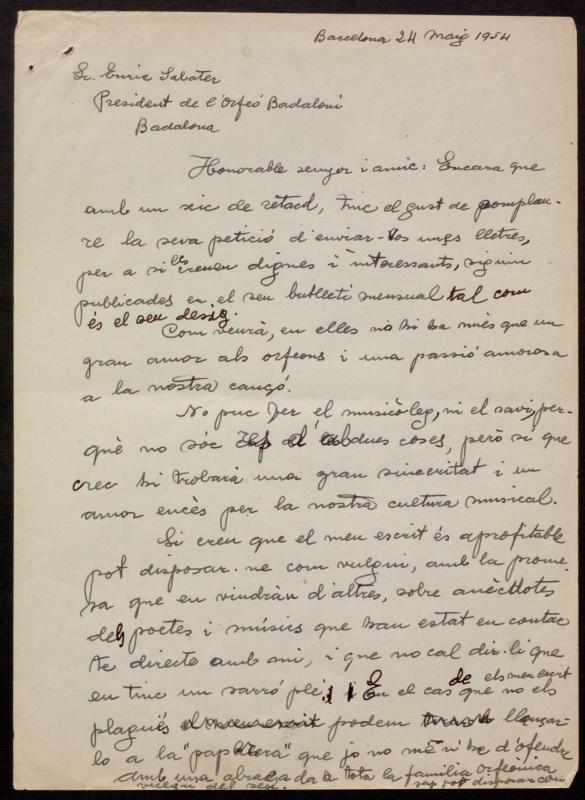 Barcelona 24 Maig 1954
Sr. Enric Sabater
President de l'Orfeó Badaloní
Badalona
Honorable senyor i amic: Encara que
amb un xic de retard, tinc el gust de complau-
re la seva petició d'enviar-vos unes lletres,
per a si les creuen dignes i interessants, siguin
publicades en el seu butlletí mensual tal com
és el seu desig.
Com veurà, en elles no hi ha més que un
gran amor als orfeons i una passió amorosa
a la nostra cançó.
No puc fer el musicòleg, ni el savi, per-
què no sóc cap d'abdues coses, però si que
crec hi trobarà una gran sinceritat i un
amor encès per la nostra cultura musical.
Si creu que el meu escrit és aprofitable
pot disposar-ne com vulgui, amb la prome-
sa que en vindràn d'altres, sobre anècdotes
dels poetes i músics que han estat en contac-
te directe amb mi, i que no cal dir-li que
en tinc un sarró ple! En el cas de que els meu escrit no els
plagués podem llençar-
lo a la "paperera" que jo no me n'he d'ofendre
amb una abraçada a tota la família orfeònica
vulgui del seu. pot disposar com